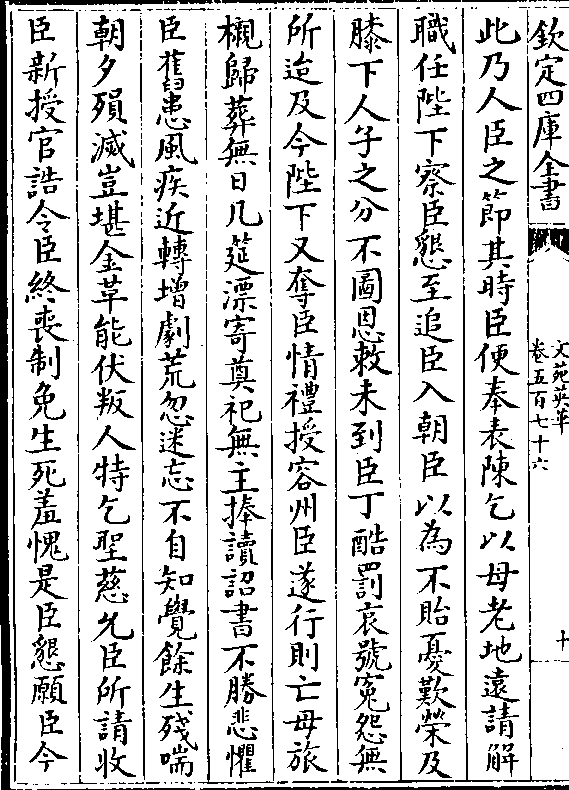 欽定四庫全書
文苑英華
卷五百七十六
十
此乃人臣之節其時臣便奉表陳乞以母老地遠請解
職任陛下察臣懇至追臣入朝臣以為不貽憂歎榮及
膝下人子之分不圖恩敕未到臣丁酷罰哀號寃怨無
所迨及今陛下又奪臣情禮授容州臣遂行則亡母旅
櫬歸葬無日几筵漂寄奠祀無主捧讀詔書不勝悲懼
臣舊患風疾近轉增劇荒忽迷忘不自知覺餘生殘喘
朝夕殞滅豈堪金革能伏叛人特乞聖慈允臣所請收
臣新授官誥令臣終喪制免生死羞愧是臣懇願臣今